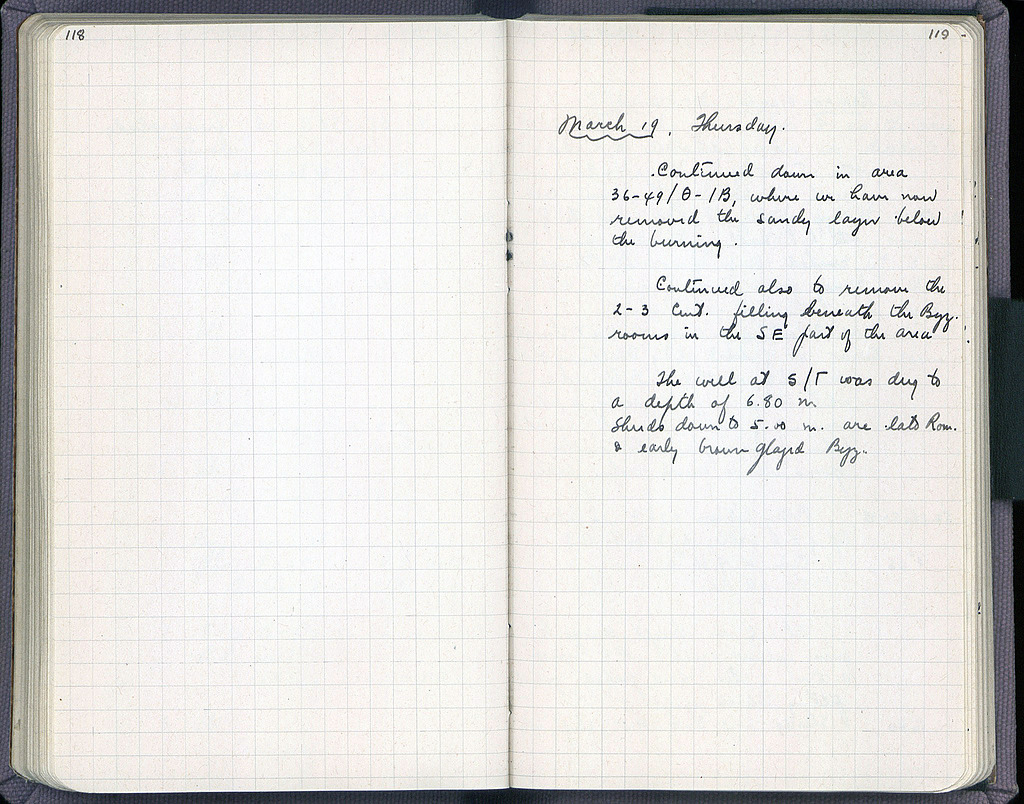 118
119
March 19, Thursday.
Continued down in area
36-49/Θ-ΙΒ, where we have now
removed the sandy layer below
the burning.
Continued also to remove the
2-3 Cent. filling beneath the Byz.
rooms in the SE part of the area
The well at 5/Γ was dug to
a depth of 6.80 m
Sherds down to 5.00 m. are late Rom.
& early brown glazed Byz.